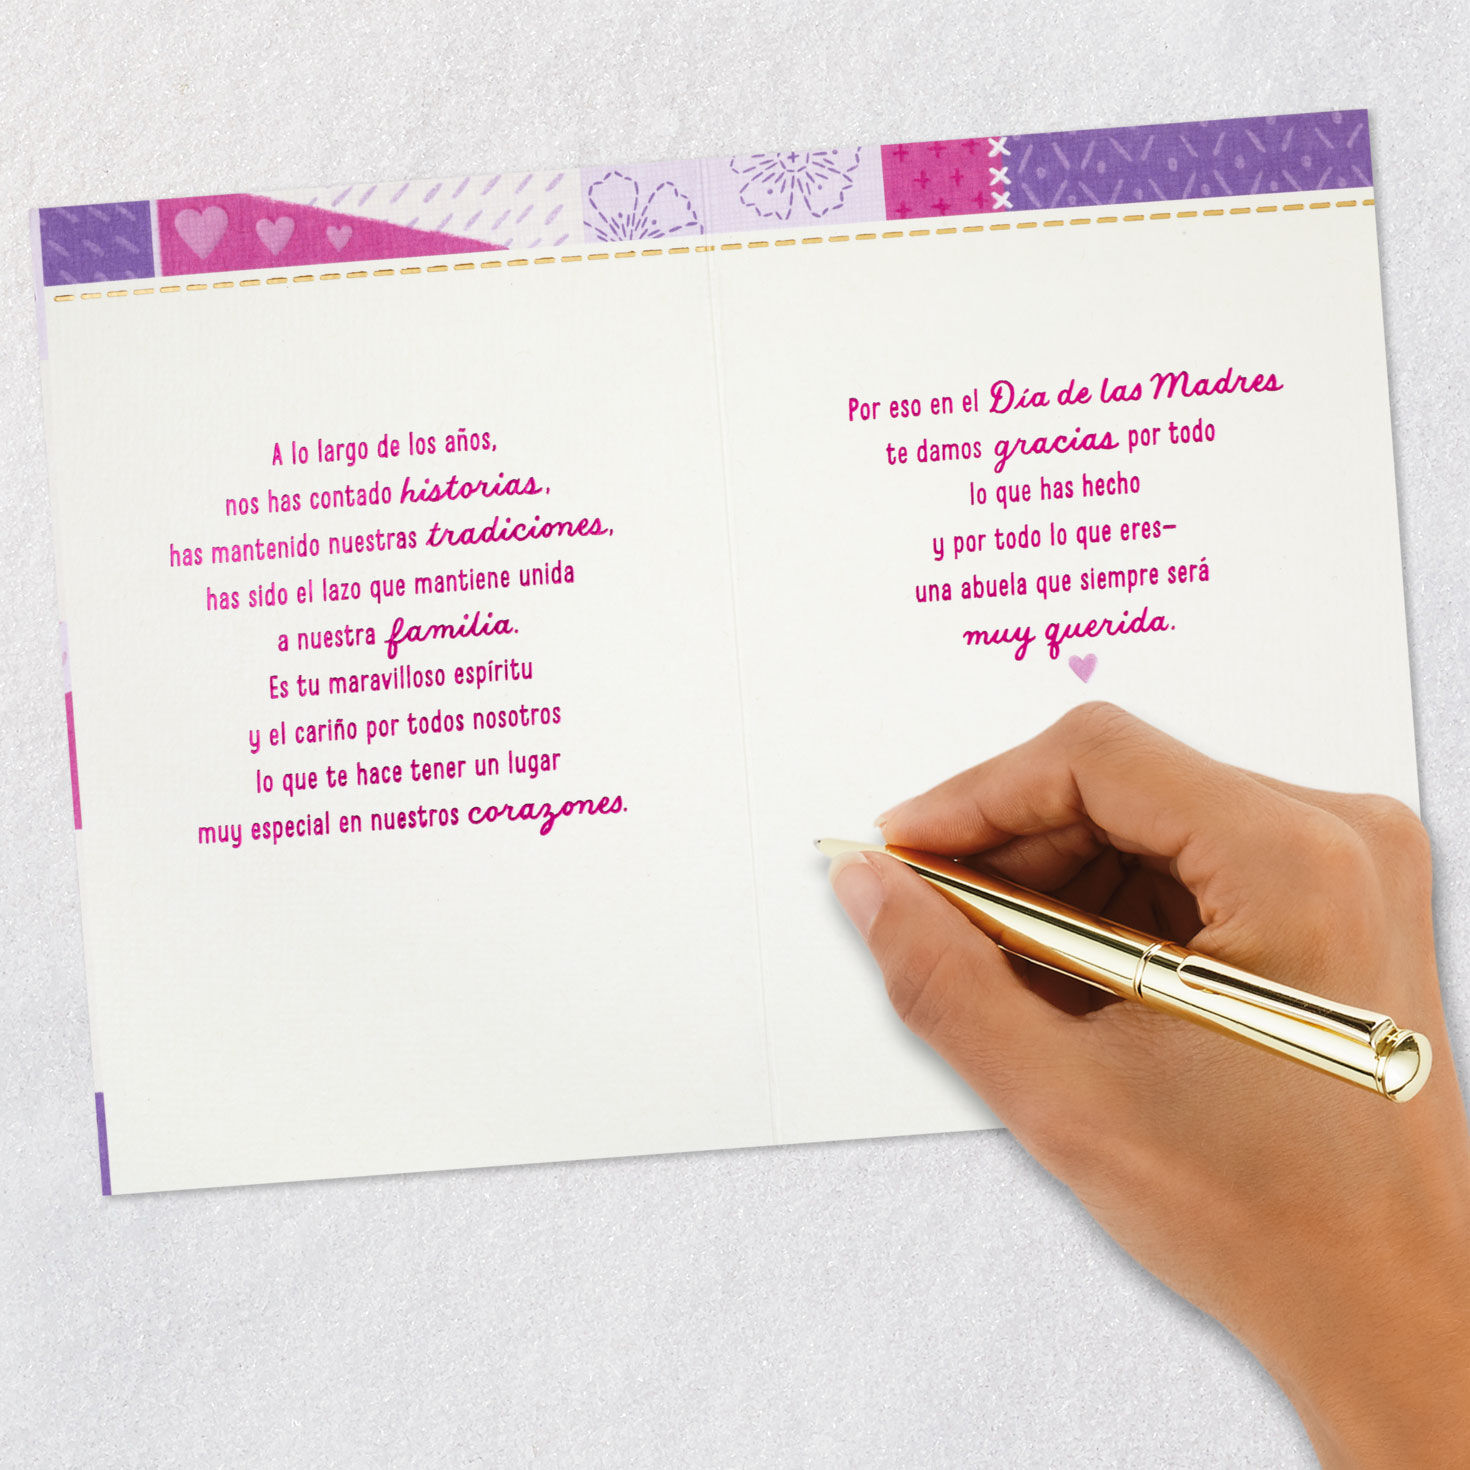 A lo largo de los años,
nos has contado historias,
has mantenido nuestras tradiciones,
has sido el lazo que mantiene unida
a nuestra familia.
Es tu maravilloso espíritu
y el cariño por todos nosotros
lo que te hace tener un lugar
muy especial en nuestros corazones.
Por eso en el Día de las Madres
te damos gracias por todo
lo que has hecho
y por todo lo que eres—
una abuela que siempre será
muy querida.